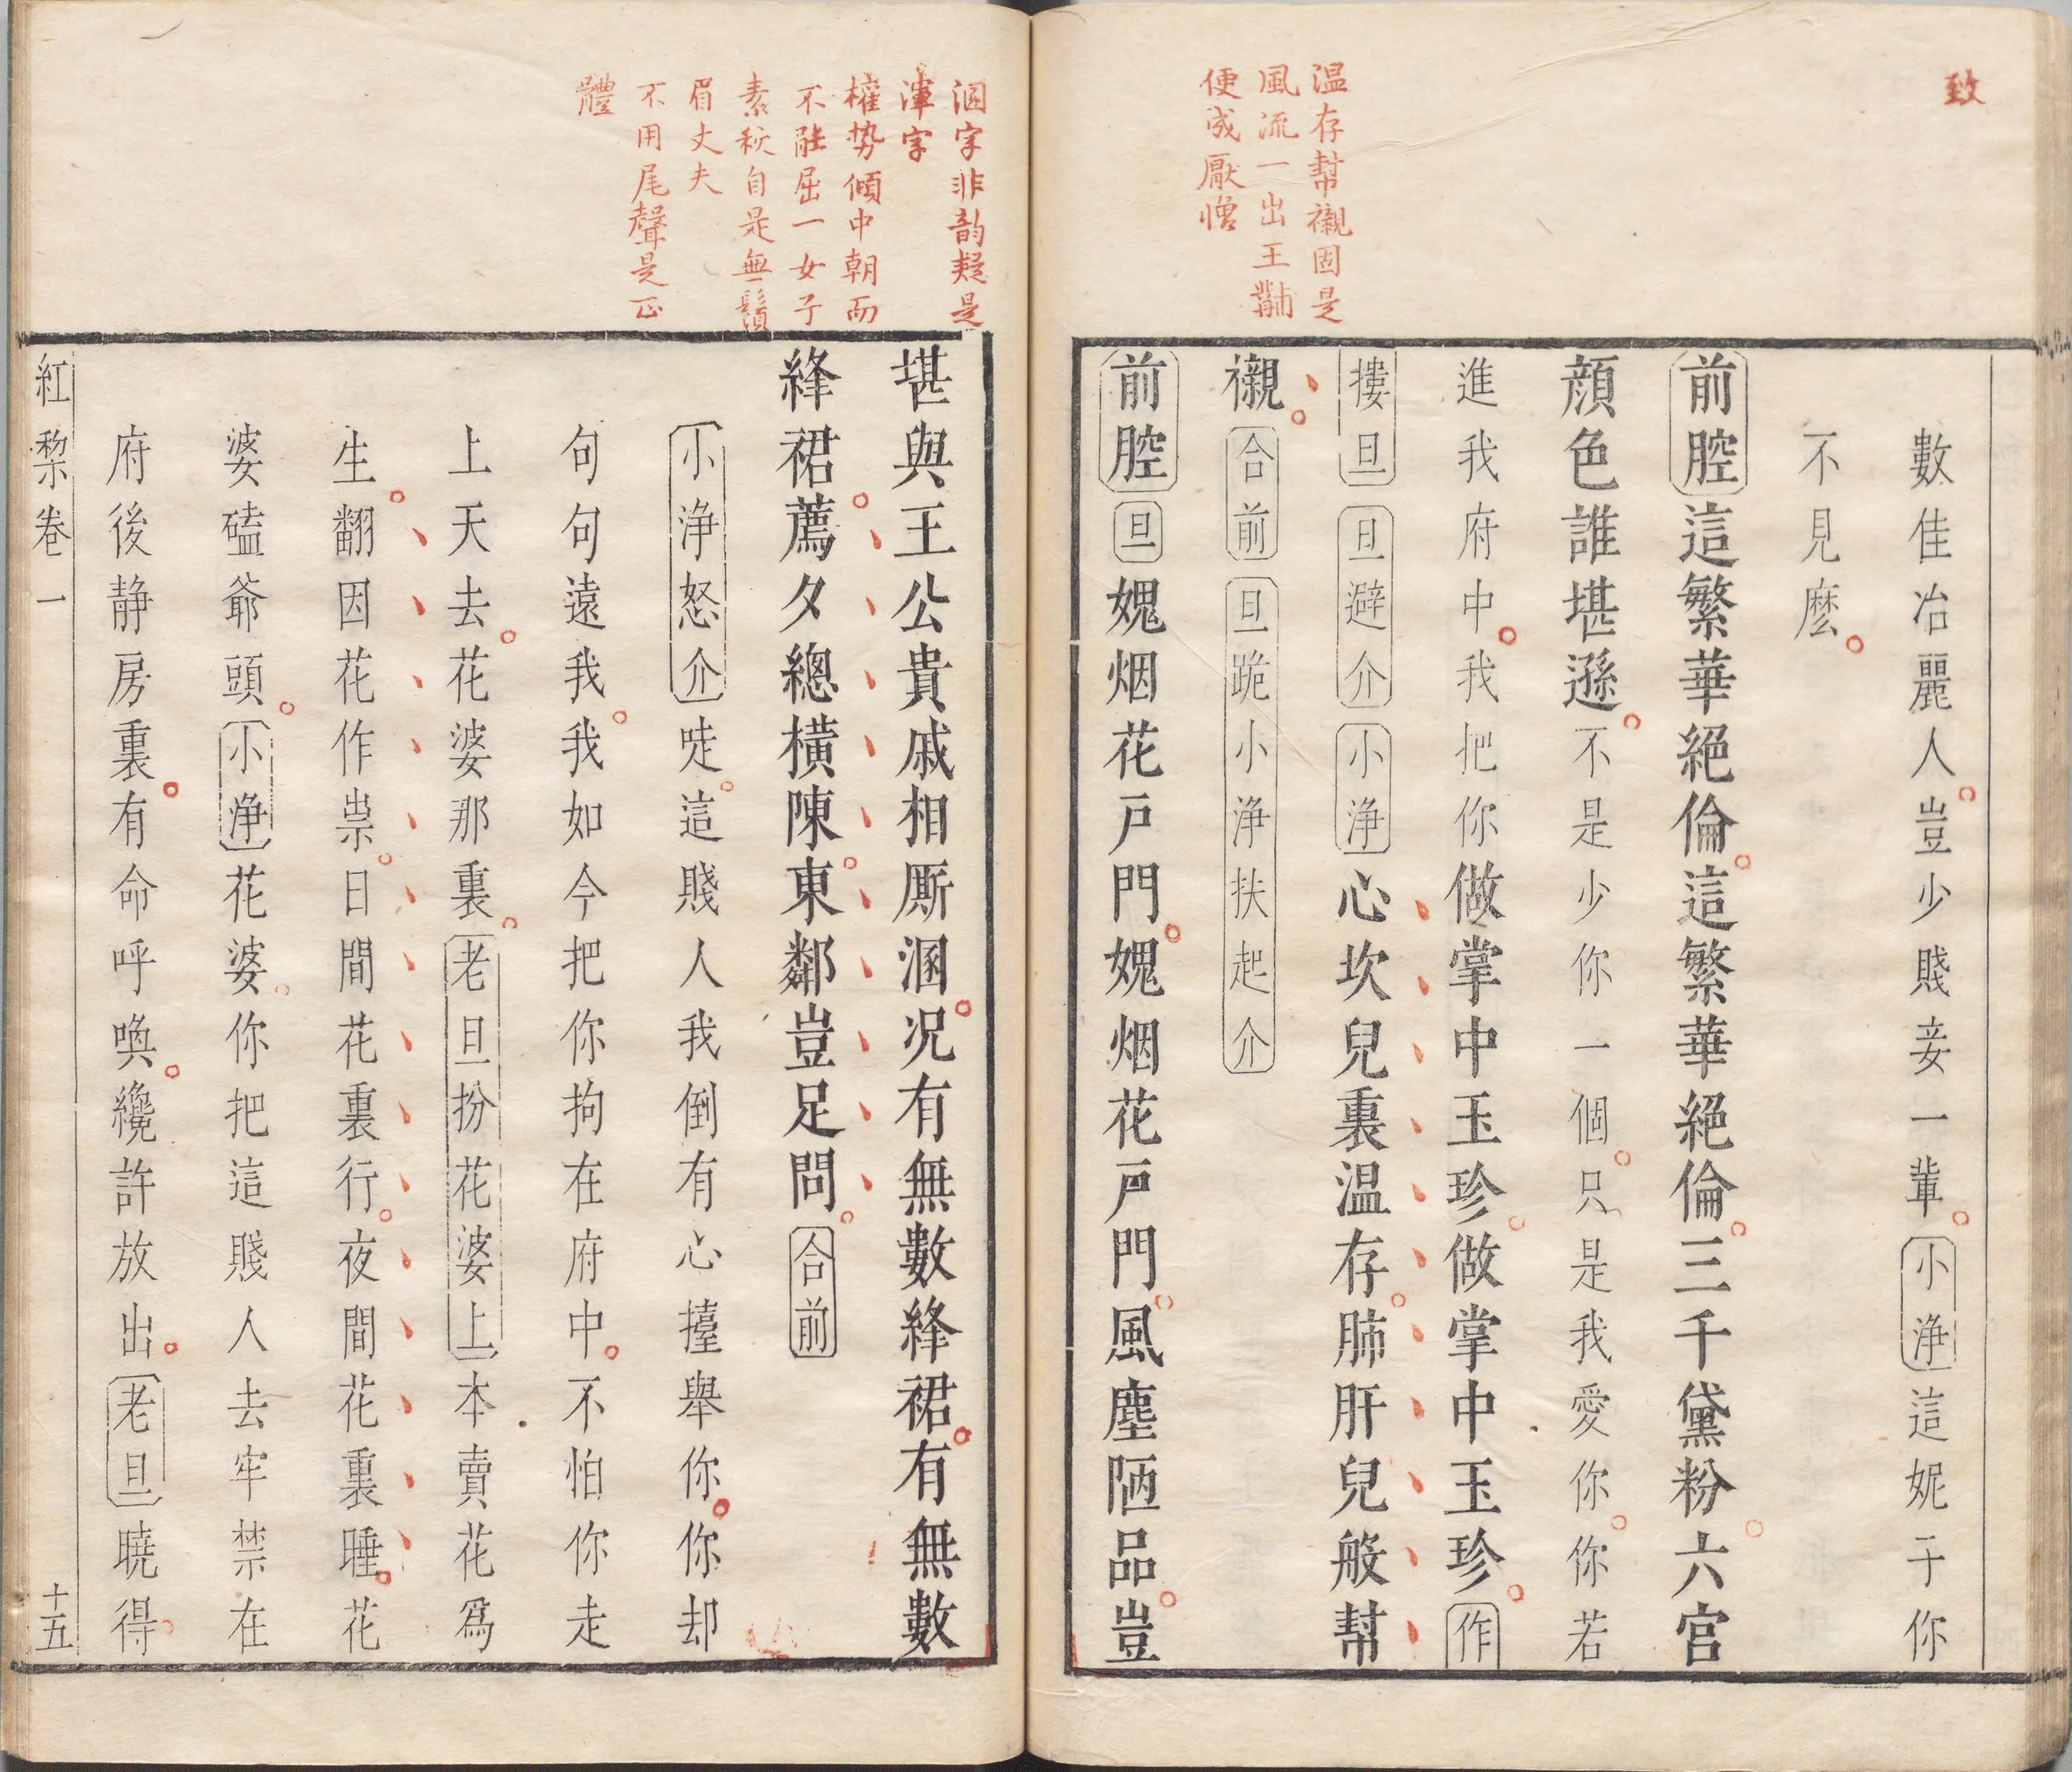 致
溫存幫襯固是
風流一出王黼
便成厭憎
數佳冶麗人豈少賤妾一輩小淨這妮子你
不見麽
前腔這繁華絕倫這繁華絕倫三千黛粉六宮
顏色誰堪遜不是少你一個只是我愛你你若
進我府中我把你做掌中玉珍做掌中玉珍作
摟旦旦避介小淨心坎兒裏溫存肺肝兒般幫
襯合前旦跪小淨扶起介
前腔旦媿烟花戶門媿烟花戶門風塵陋品豈
溷字非韵疑是
渾字
權势傾中朝而
不能屈一女子
素秋自是無鬚
眉丈夫
不用尾聲是正
體
堪與王公貴戚相厮溷况有無數絳裙有無數
絳裙薦夕總橫陳東鄰豈足問合前
小淨怒介唗這賤人我倒有心擡舉你你却
句句遠我我如今把你拘在府中不怕你走
上天去花婆那裏老旦扮花婆上本賣花爲
生翻因花作祟日間花裏行夜間花裏睡花
婆磕爺頭小淨花婆你把這賤人去牢禁在
府後静房裏有命呼喚纔許放出老旦曉得
紅棃卷一
十五